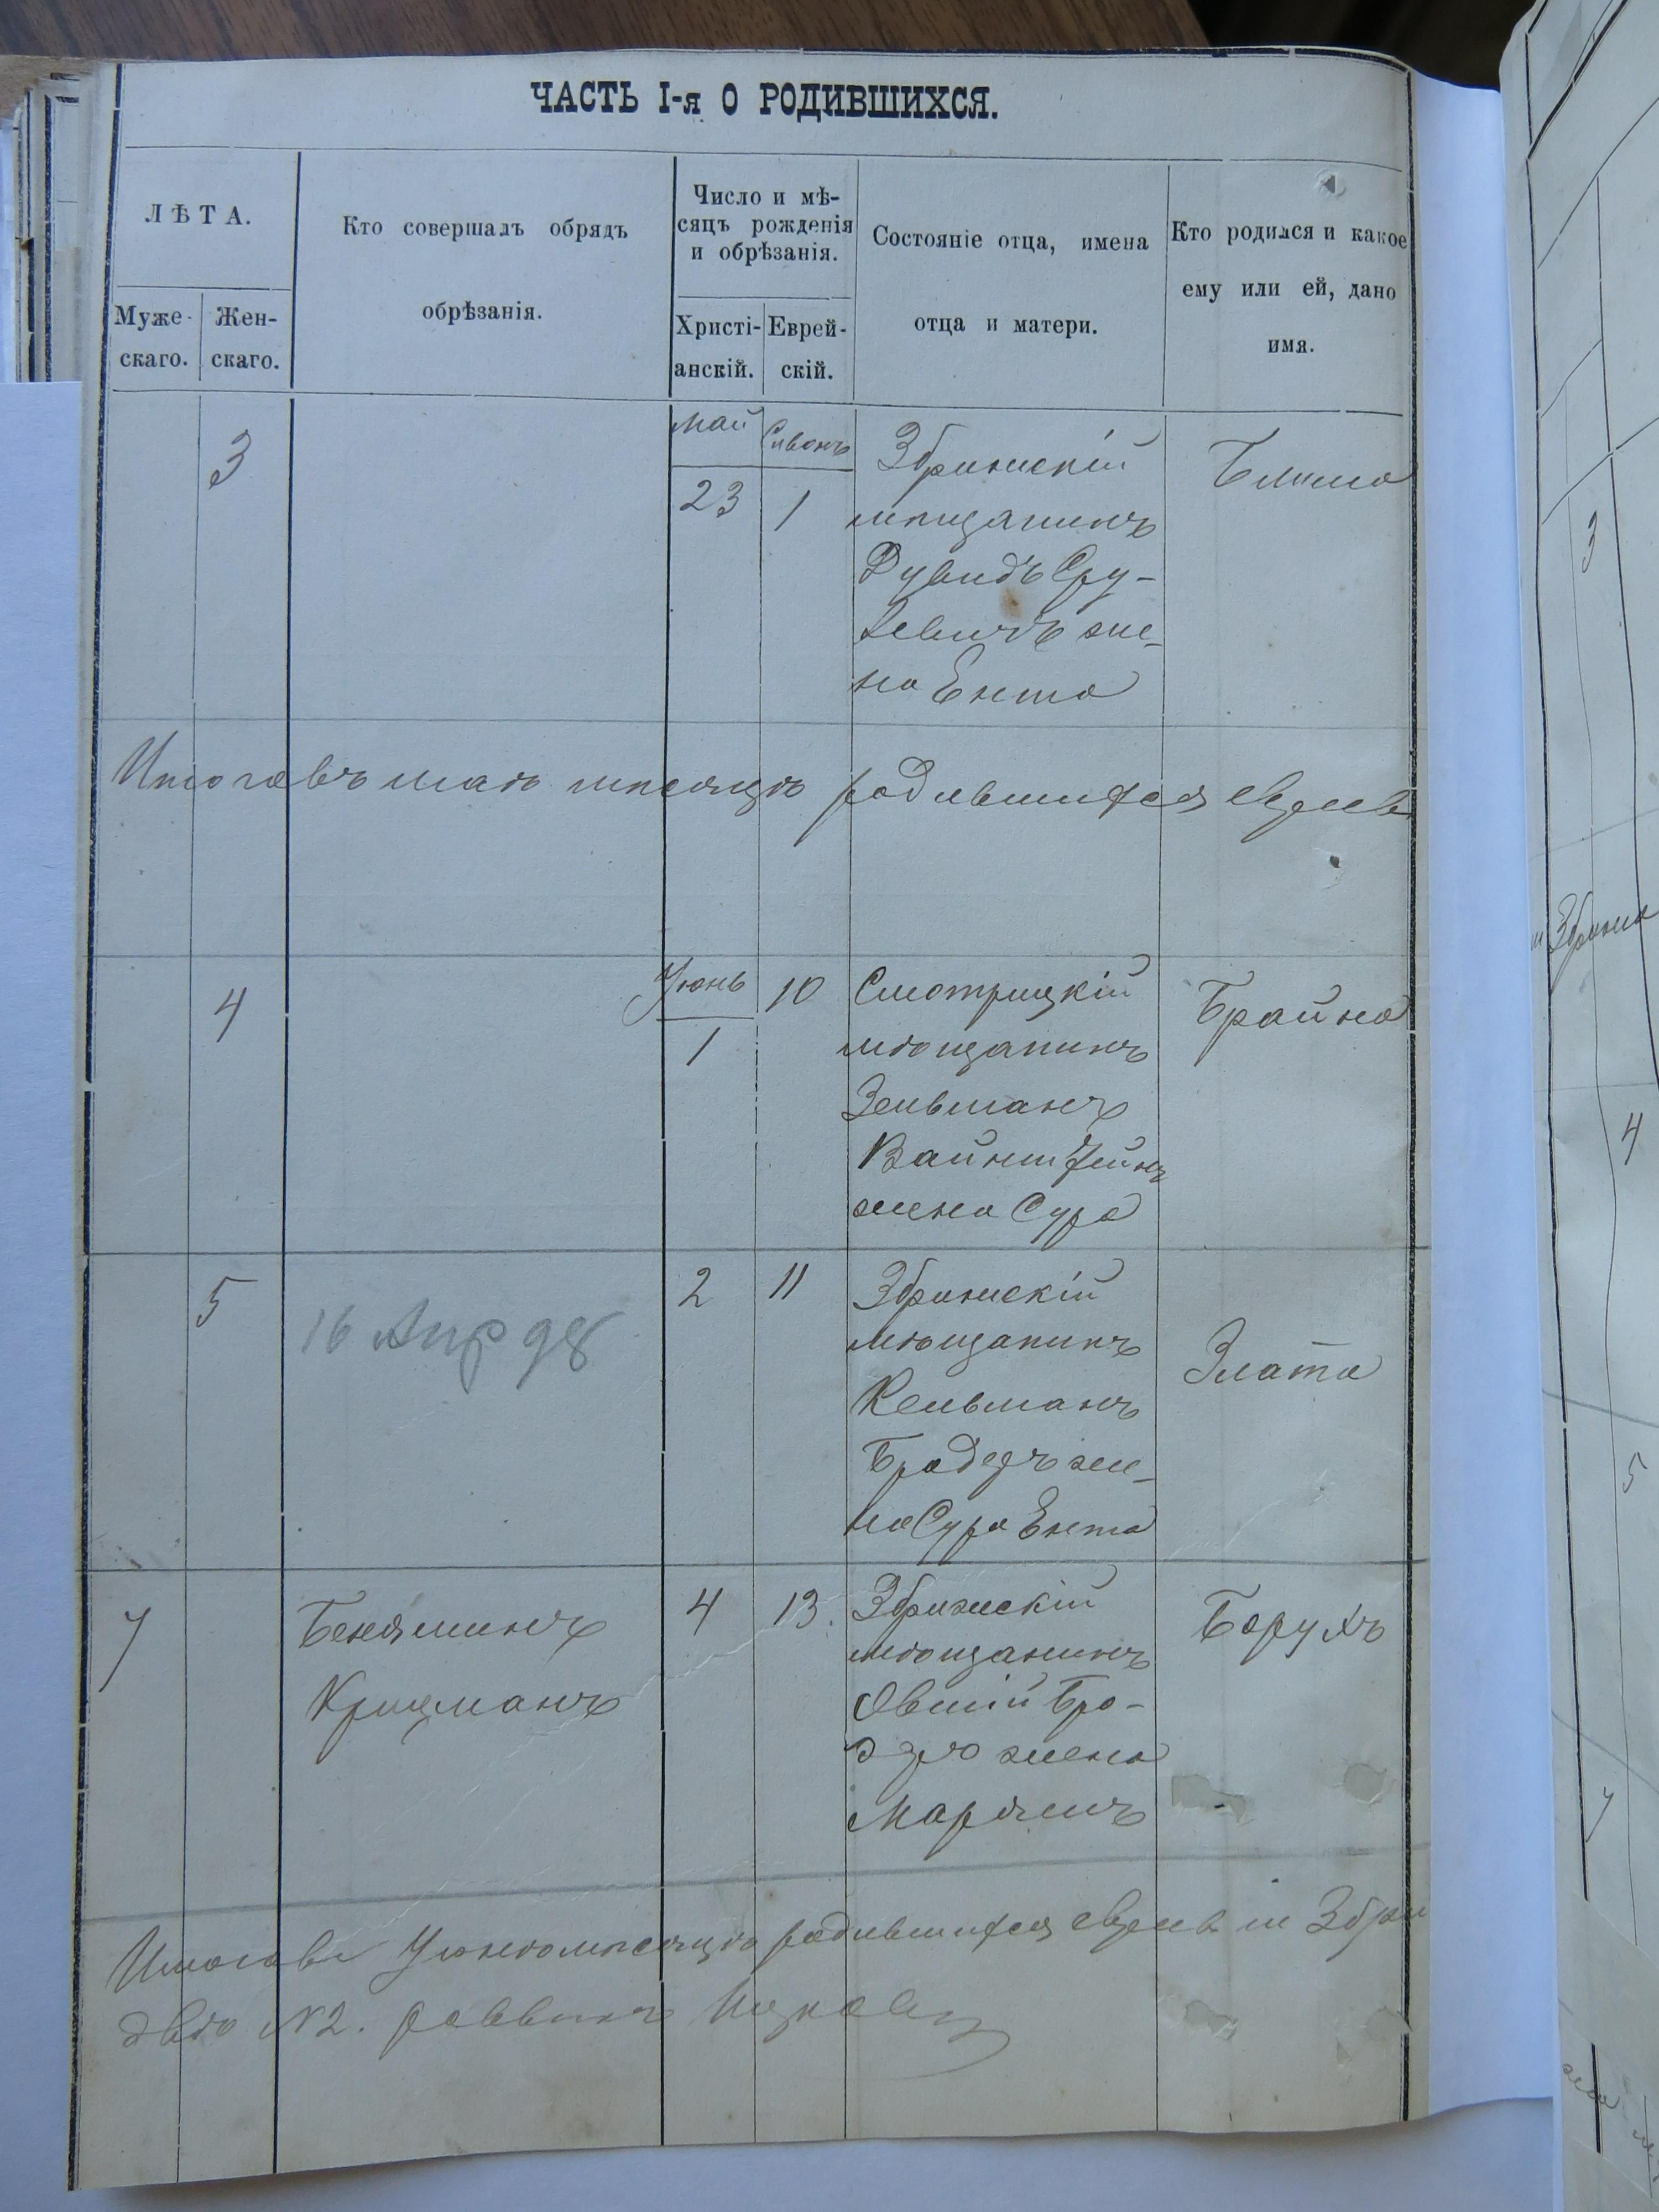 ЧАСТЬ I-я О РОДИВШИХСЯ.
ЛѢТА.
Муже-
скаго.
Жен-
скаго.
Кто совершалъ обрядъ
обрѣзанія.
Число и мѣ-
сяцъ рожденія
и обрѣзанія.
Христі-
анскій.
Еврей-
скій.
Состояніе отца, имена
отца и матери.
Кто родился и какое
ему или ей, дано
имя.
3
май
23
Сивонъ
1
Збрижскій
мѣщанинъ
Дувидъ Сру-
левичъ же-
на Ента
Блима
Итого въ маѣ мѣсяцѣ родившихся евреевъ
4
Іюнь
1
10
Смотрицкій
мѣщанинъ
Зельманъ
Вайнштейнъ
жена Сура
Брайна
5
16 Апр 98
2
11
Збрижскій
мѣщанинъ
Кельманъ
же-
на Сура Ента
Злата
7
Беняминъ
Крицманъ
4
13.
Збрижскій
мѣщанинъ
Овшій Бро-
жена
Марямъ
Борухъ
Итого въ Іюнѣ мѣсяцѣ родившихся евреевъ м Збри
двѣ №2. раввинъ
3
м Збрижъ
4
5
7